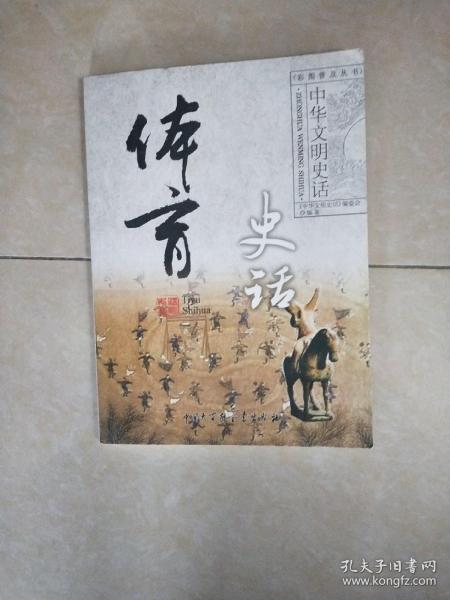 《彩图普及丛书》
中华文明史话
·ZHONGHUA WENMING SHIHUA·
《中华文明史话》编委会
编著
体育
史话
Tiyu
Shihua
中国大百科全书出版社
孔夫子旧书网
www.kongfz.com